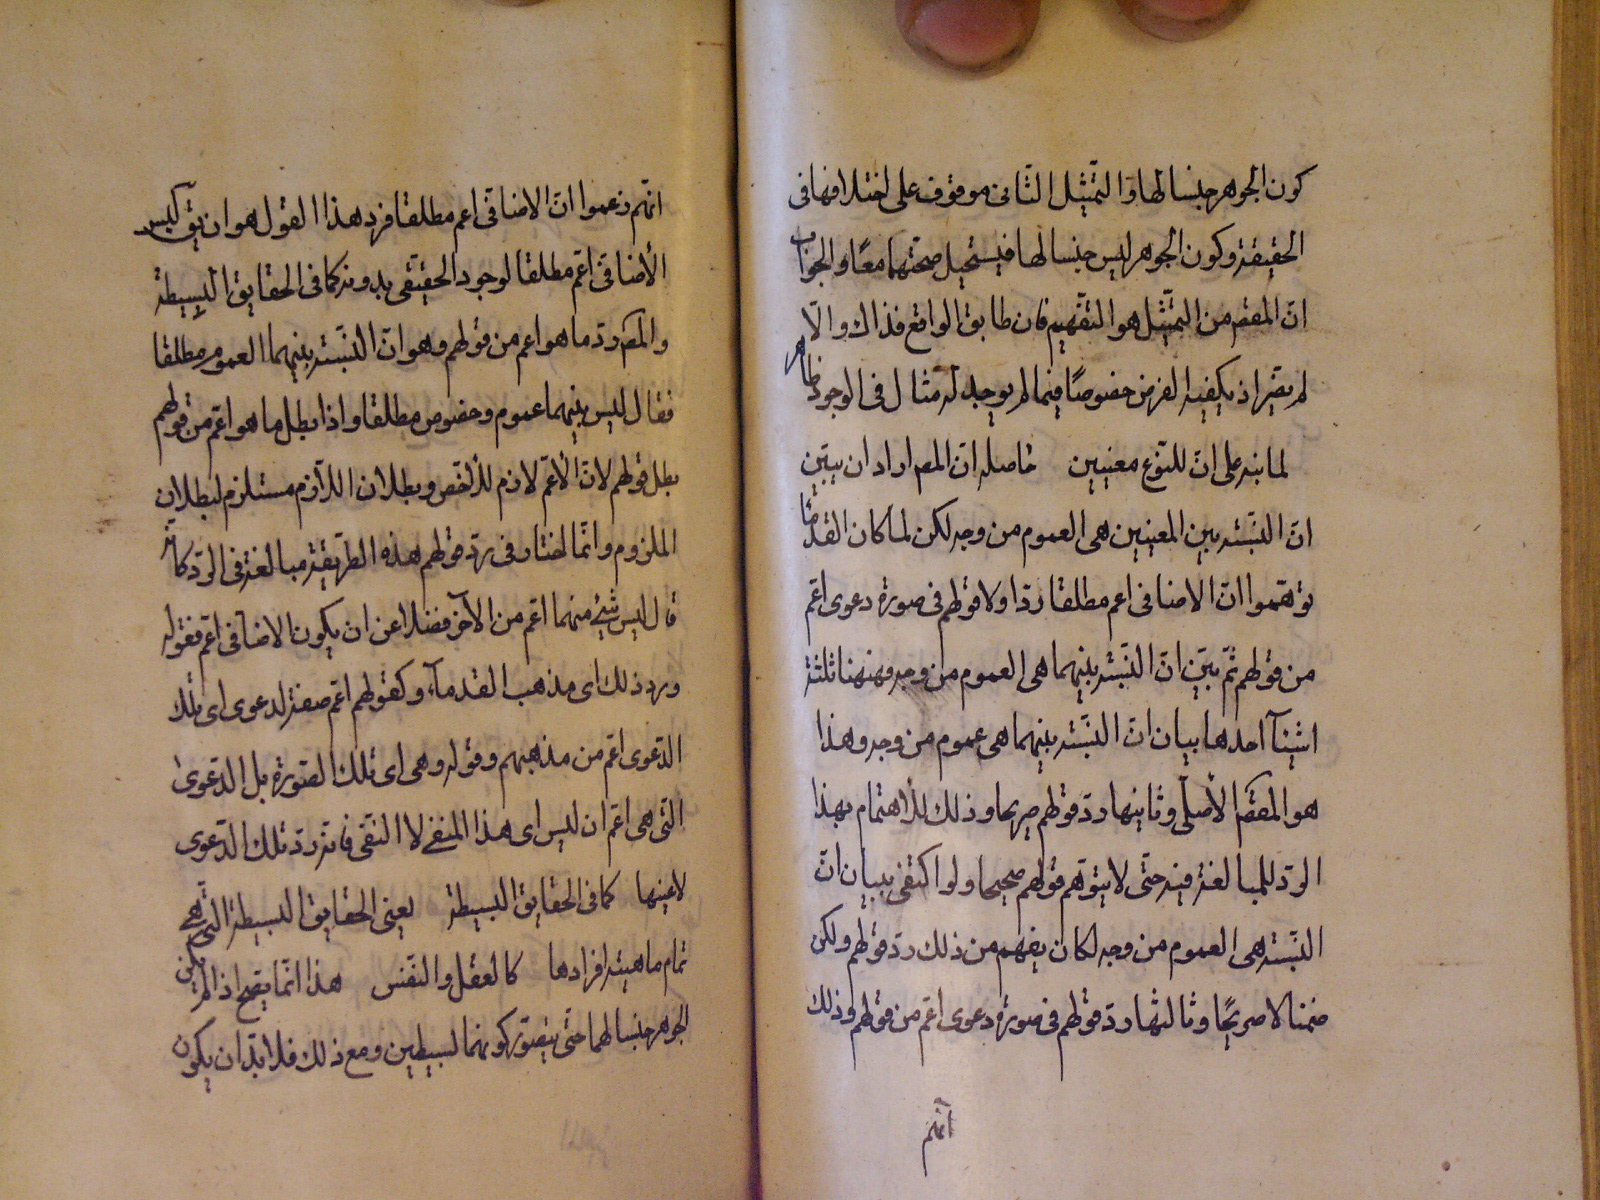 كون الجوهر جنسا لها والتمثيل الثانى موقوف على اختلافها فى
الحقيقة وكون الجوهر ليس جنسا لها فيستحيل صحتهما معًا والجواب
انّ المقصم من التمثيل هو التفهيم فان طابق الواقع فذاك والّا
لم يضر اذ يكفيه الفرض خصوصًا فيما لم يوجد له مثال فى الوجود ظاهر
لما نبه على انّ للنوع معنيين حاصله انّ المصم اراد ان يبيّن
انّ النّسبة بين المعنيين هى العموم من وجه لكن لما كان القدمآء
توهّموا انّ الاضافى اعم مطلقا ردّ اولا قولهم فى صورة دعوى اعّم
من قولهم ثمّ بيّن انّ النّسبة بينهما هى العموم من وجه فههنا ثلثة
اشيآء احدها بيان انّ النّسبة بينهما هى عموم من وجه وهذا
هو المقصم الأصلّى وثانيها ردّ قولهم صريحا وذلك للأهتمام بهذا
الردّ للمبالغة فيه حتّى لا يتوّهم قولهم صحيحا ولو اكتفى ببيان انّ
النّسبة هى العموم من وجه لكان يفهم من ذلك ردّ قولهم ولكن
ضمنا لا صريحًا وثالثها ردّ قولهم فى صورة دعوى اعّم من قولهم وذلك
انّهم
انّهم زعموا انّ الاضافى اعم مطلقا فرد هذا القول هو ان يق ليس
الأضافى اعّم مطلقا لوجود الحقيقى بدونه كما فى الحقايق البسيطة
والمصم ردّ ما هو اعم من قولهم وهو انّ النّسبة بينهما العموم مطلقا
فقال ليس بينهما عموم وخصوص مطلقا واذا بطل ما هو اعّم من قولهم
بطل قولهم لانّ الأعّم لازم للأخّص وبطلان اللّازم مستلزم لبطلان
الملزوم وانّما اختار فى ردّ قولهم هذه الطريقة مبالغة فى الردّ كانّه
قال ليس شئ منهما اعّم من الآخر فضلا عن ان يكون الاضافى اعّم فقوله
ورد ذلك اى مذهب القدمآء وكقولهم اعّم صفة لدعوى اى تلك
الدّعوى اعّم من مذهبهم وقوله وهى اى تلك الصّورة بل الدّعوى
التّى هى اعّم ان ليس اى هذا المنفى لا النفى فانه ردّ تلك الدّعوى
لا عينها كما فى الحقايق البسيطة يعنى الحقايق البسيطة التّى هى
تمام ماهية افرادها كالعقل والنّفس هذا انّما يصح اذ الم يكن
الجوهر جنسا لهما حتّى يتصّور كونهما بسيطين ومع ذلك فلا بدّ ان يكون